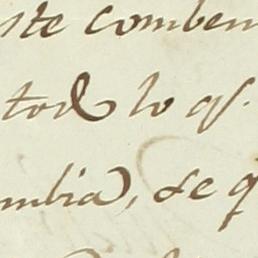 ste comben
tod lo qs.
mbia, se q